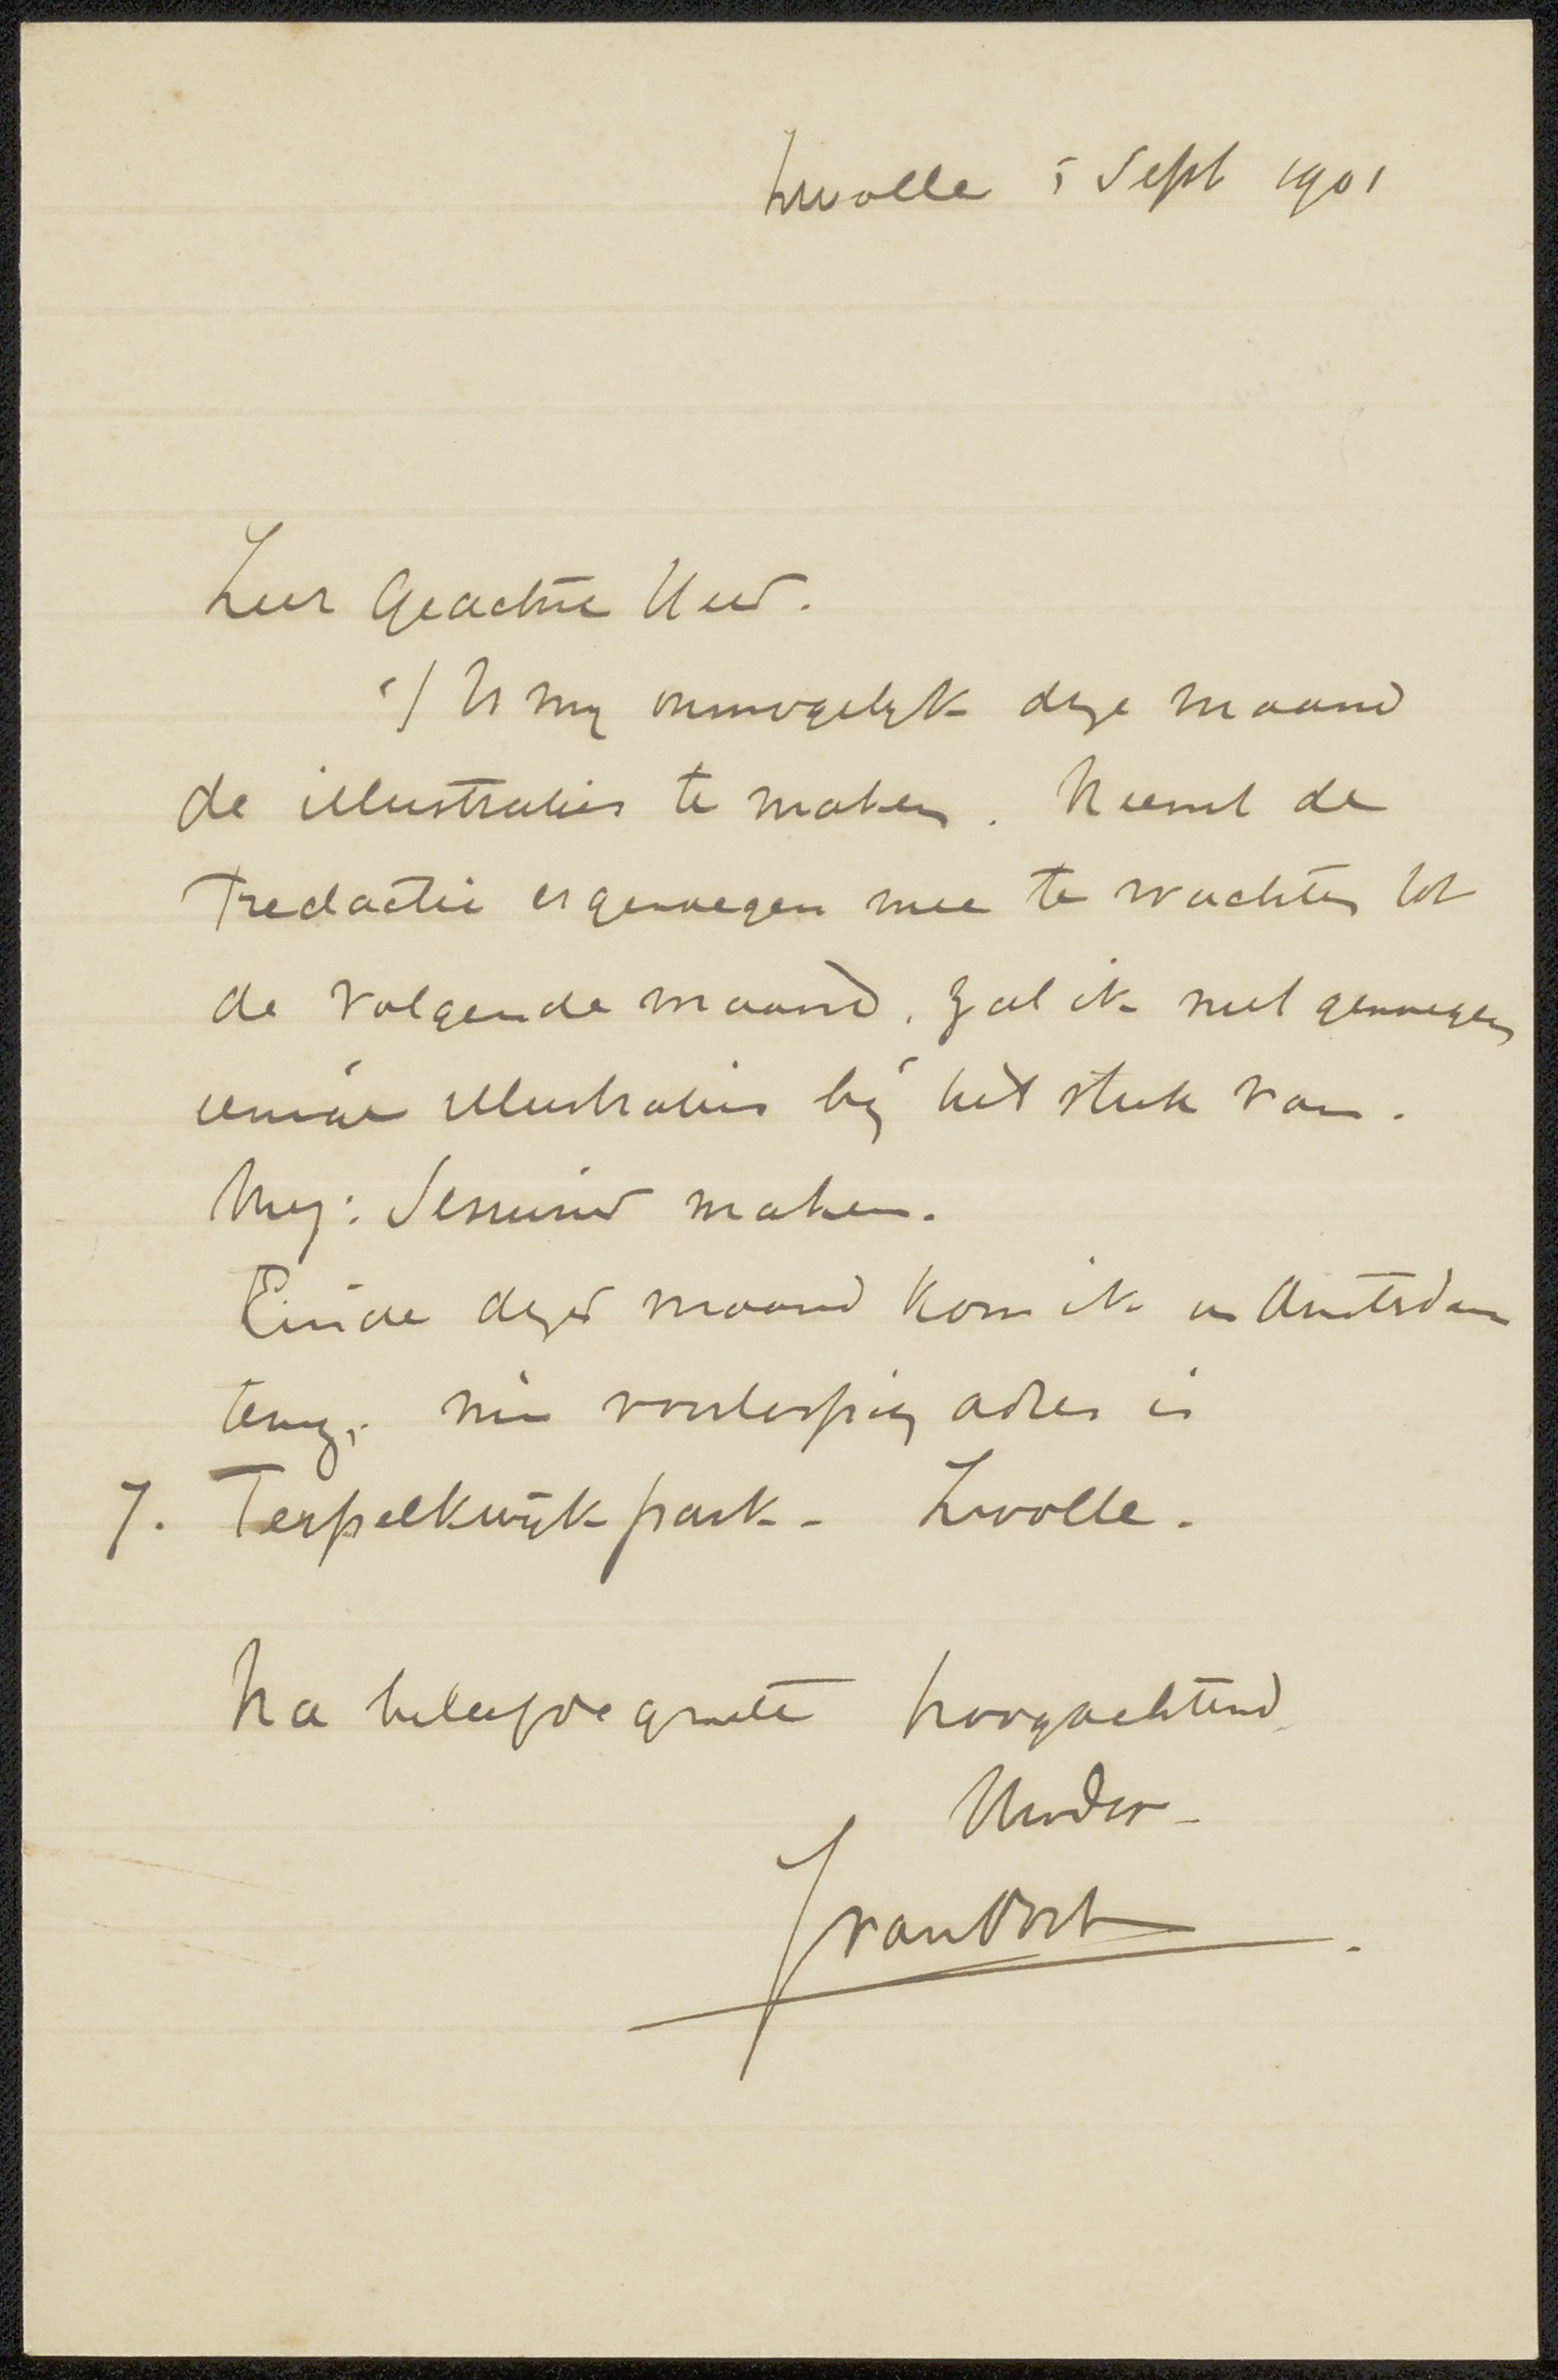 Zwolle 5 Sept 1901
Zeer Geachte Heer.
't Is my onmogelyk deze maand
de illustraties te maken. Neemt de
redactie er genoegen mee te wachten tot
de volgende maand, zal ik met genoegen
eenige illustraties by het stuk van.
Mej: maken.
Einde dezer maand kom ik in Amsterdam
terug, mijn voorloopig adres is
7. Terpelkwijk park - Zwolle.
Na beleefde groete hoogachtend
UwDr -
J van Oort.